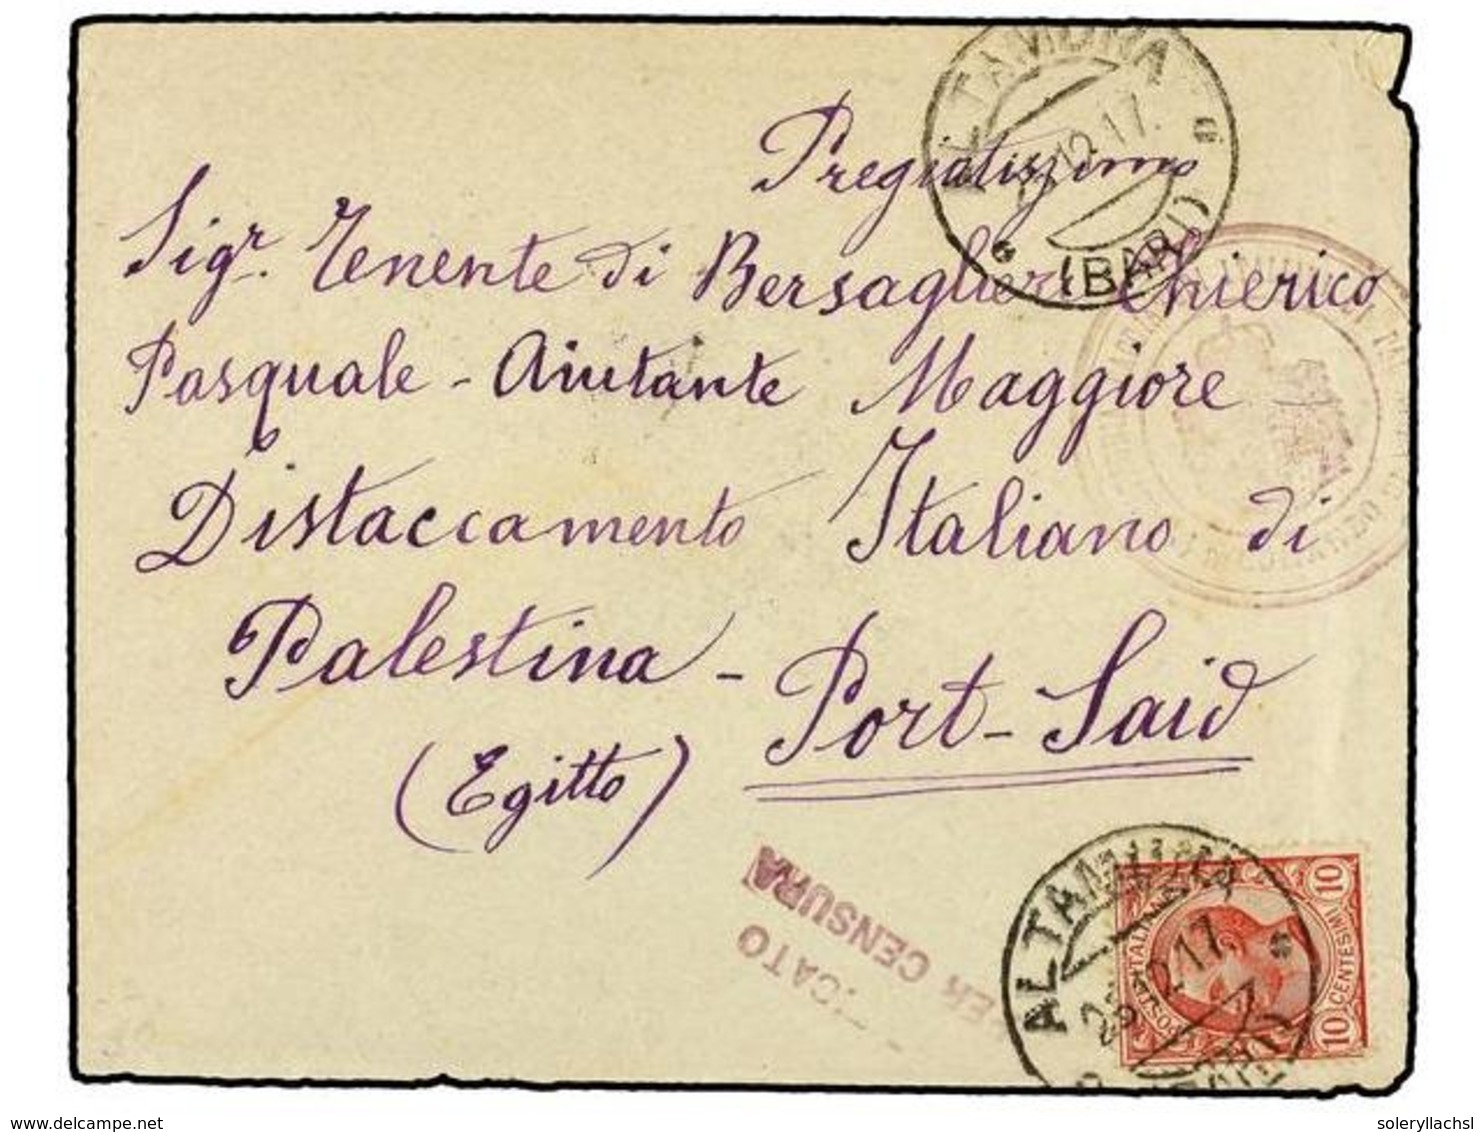 ALTAMURA
12.17.
(BARI)
Pregiatissimo
Sigr. Tenente di Bersaglieri Chierico
Pasquale - Aiutante Maggiore
Distaccamento Italiano di
Palestina - Port-Said
(Egitto)
CENSURA
ALTAMURA
12.17
(BARI)
POSTE ITALIANE
10 CENTESIMI 10
soleryllachsl